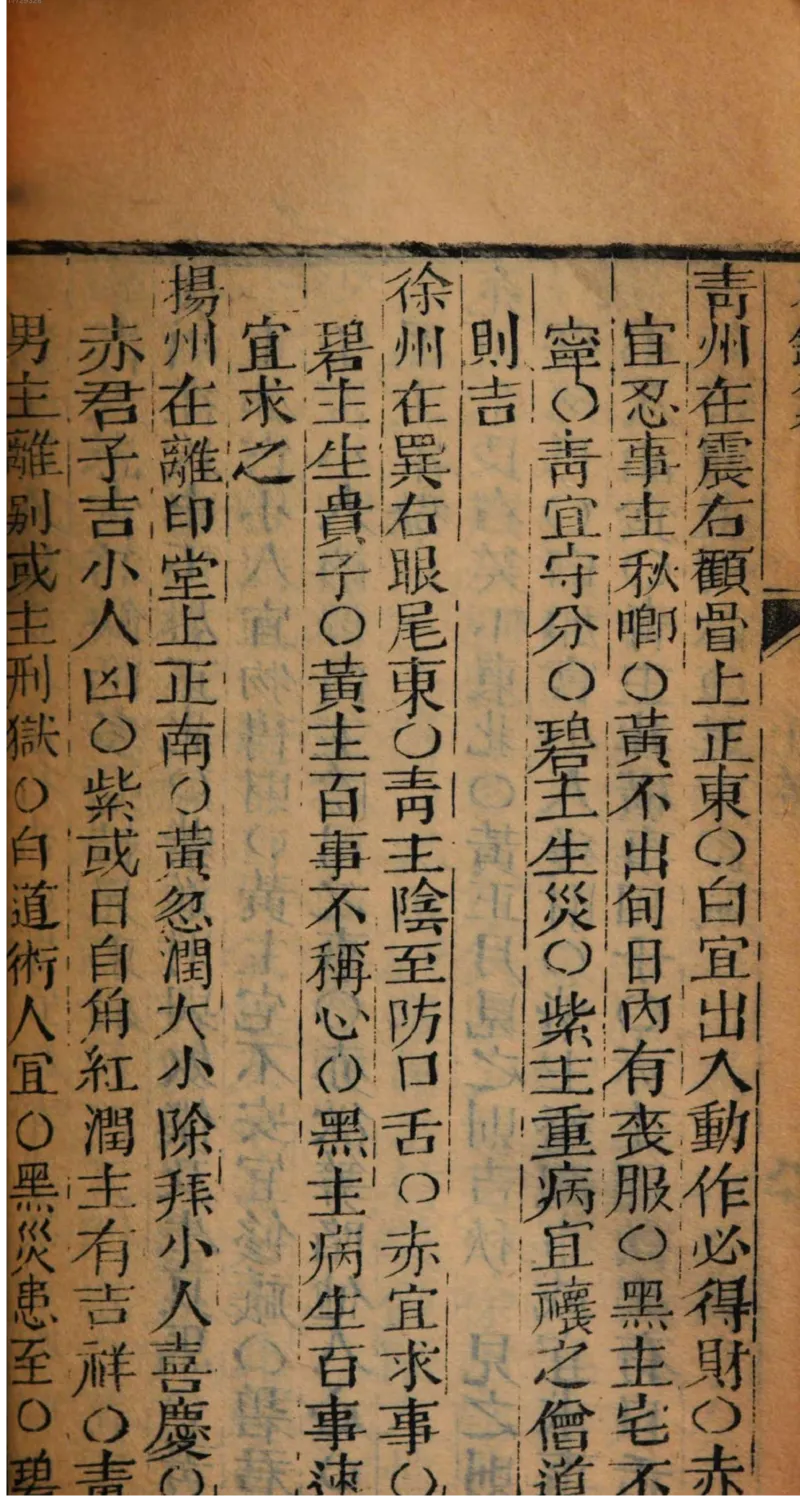 靑州在震右顴骨上正東〇白宜出入動作必得財〇赤
宜忍事主秋唧〇黃不出旬日內有喪服〇黑主宅不
寧〇靑宜守分〇碧主生災〇紫主重病宜禳之僧道
則吉
徐州在巽右眼尾東〇靑主陰至防口舌〇赤宜求事〇
碧主生貴子〇黃主百事不稱心〇黑主病生百事速
宜求之
揚州在離印堂上正南〇黃忽潤大小除拜小人喜慶〇
赤君子吉小人凶〇紫或日自角紅潤主有吉祥〇靑
男主離别或主刑獄〇白道術人宜〇黑災患至〇碧